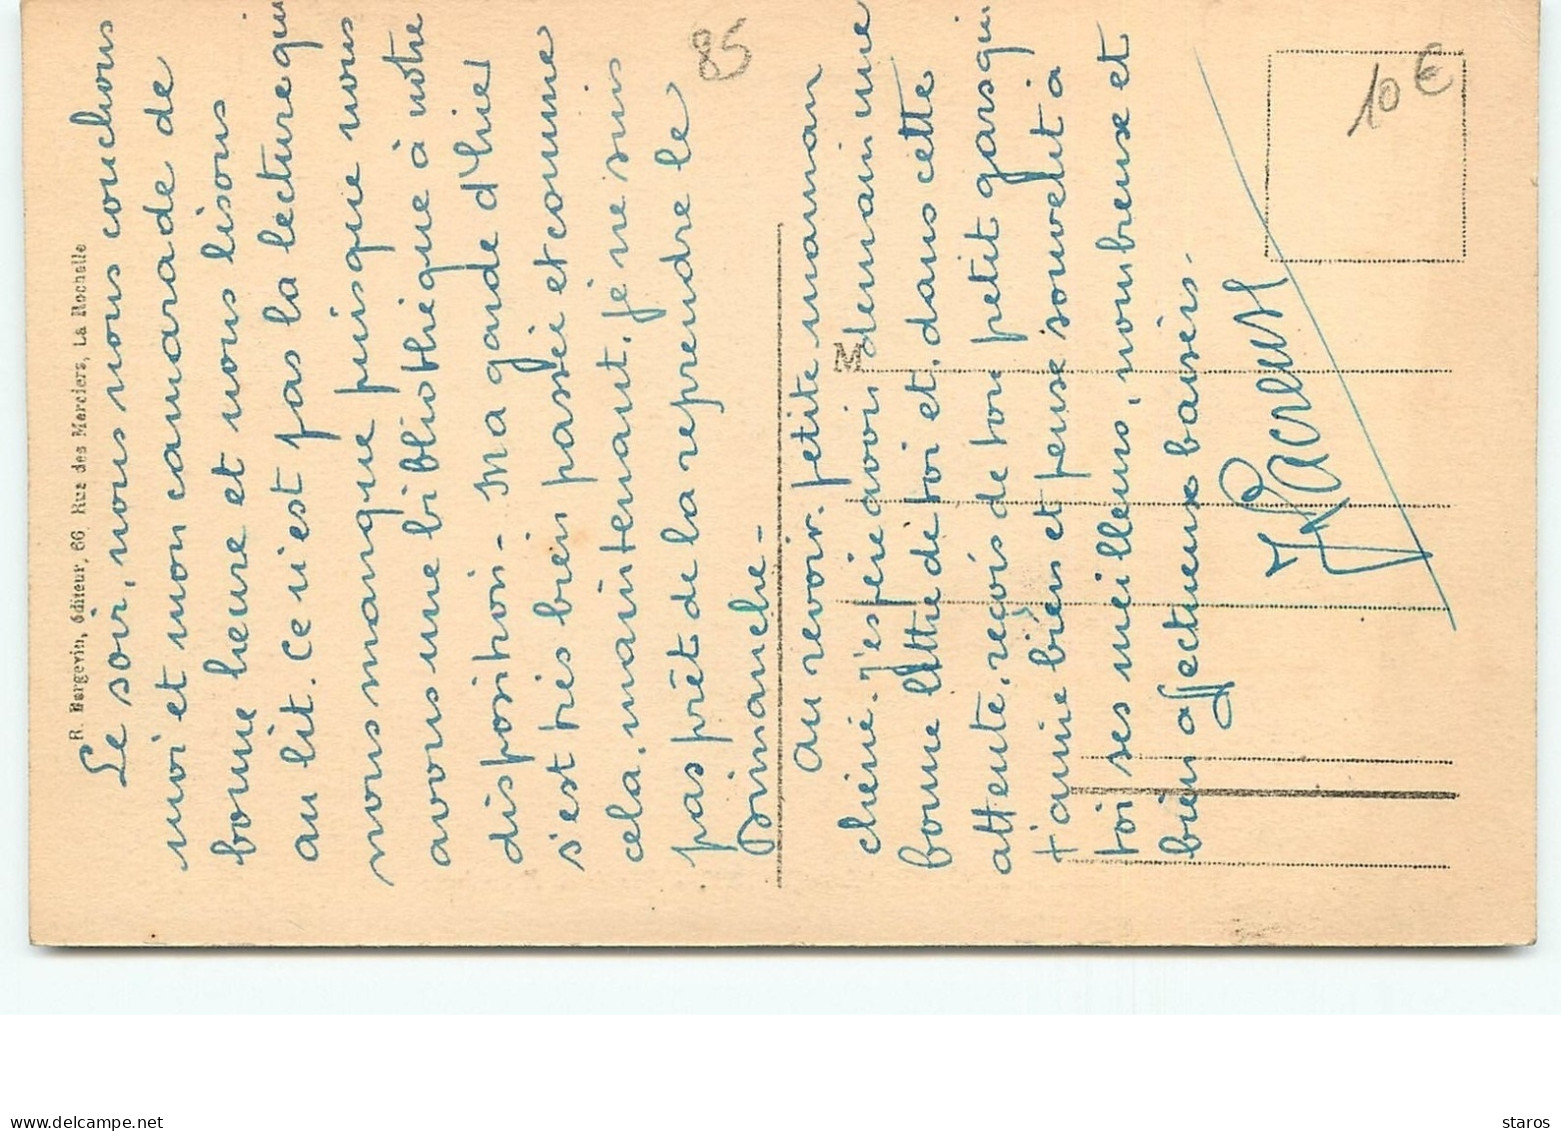 R. Bergevin, éditeur, 66, Rue des Merciers, La Rochelle
Le soir, nous nous couchons
moi et mon camarade de
bonne heure et nous lisons
au lit. Ce n'est pas la lecture qui
nous manque puisque nous
avons une bibliothèque à notre
disposition - Ma garde d'hier
s'est très bien passée et comme
cela, maintenant, je ne suis
pas prêt de la reprendre le
Dimanche -
Au revoir. petite maman
chérie - j'espère avoir demain une
bonne lettre de toi et, dans cette
attente, reçois de ton petit gars qui
t'aime bien et pense souvent à
toi ses meilleurs, nombreux et
bien affectueux baisers -
M
85
10 €
delcampe.net
staros